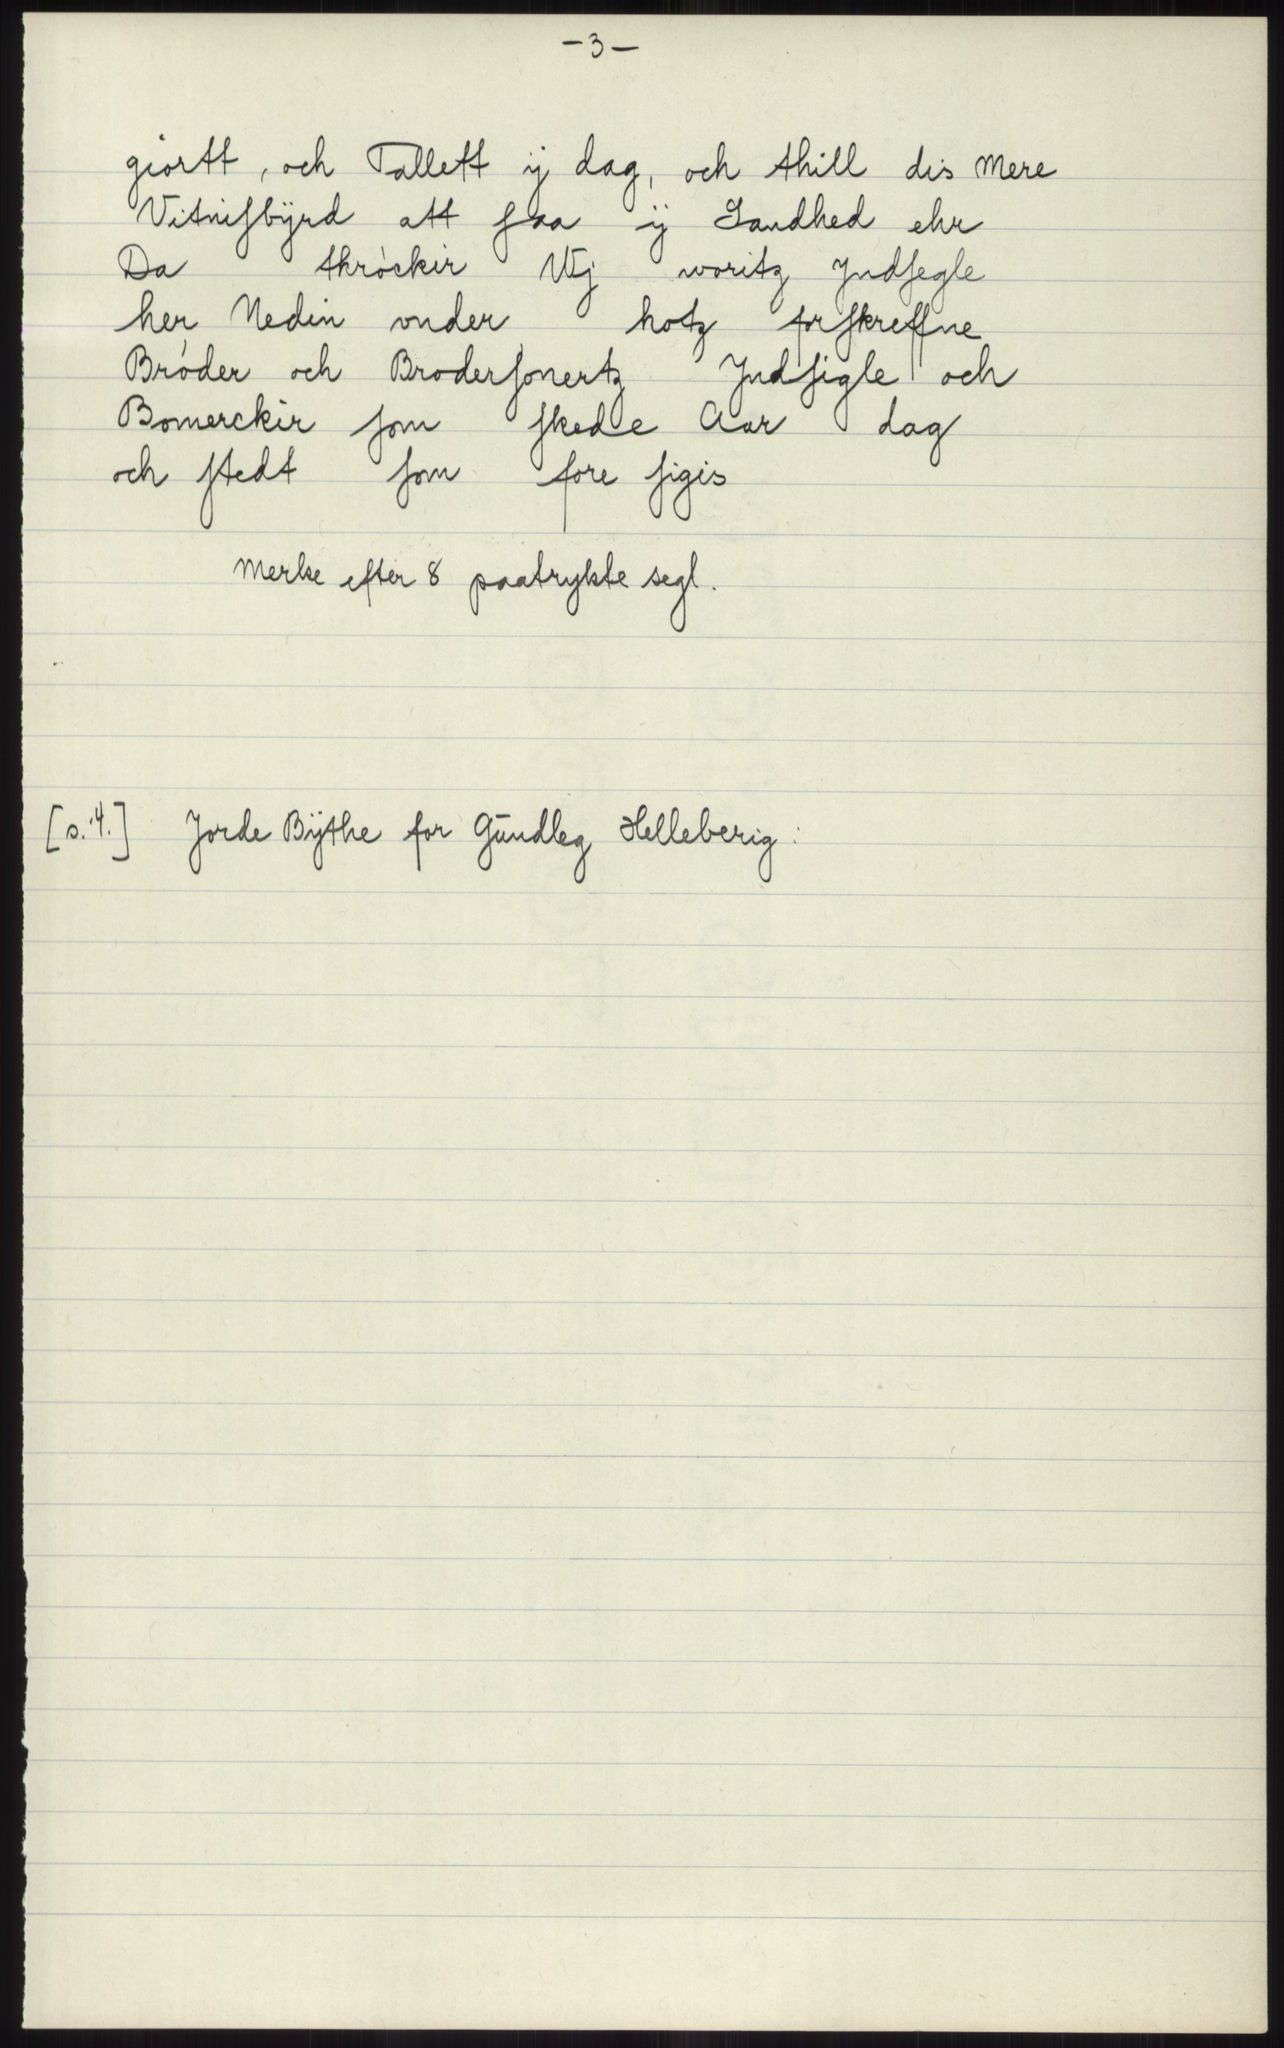 -3-
giortt, och Tallett ÿ dag, och thill dis Mere
Vitnisbÿrd att saa ÿ Sandhed ehr
Da thröckir Vij woritz Jndsegle
her Nedin vnder, hotz forskreffne
Bröder och Brodersonertz Jndsigle och
Bomerckir som skede Aar dag
och stedt som fore sigis
Merke efter 8 paatrykte segl.
[s. 4.] Jorde Bÿthe for Gundleg Helleberig: